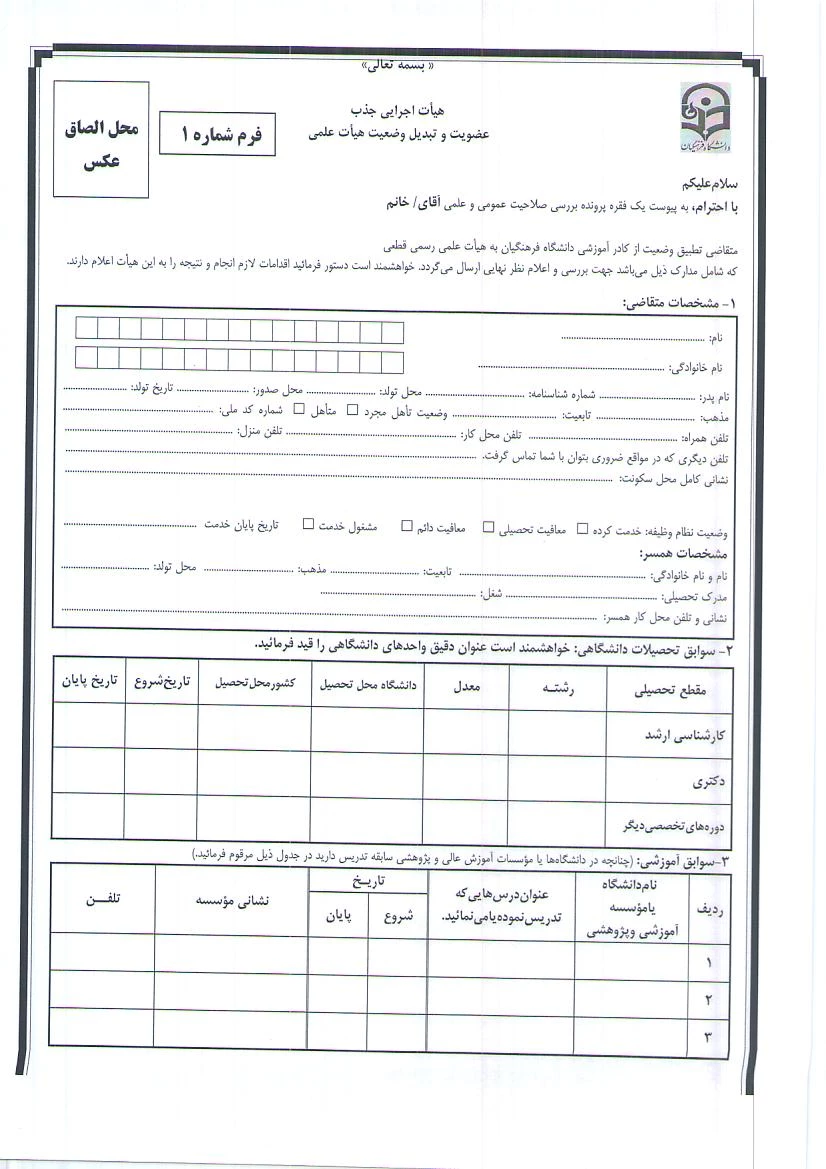 « بسمه تعالی»
هیأت اجرایی جذب
عضویت و تبدیل وضعیت هیأت علمی
فرم شماره ۱
محل الصاق
عکس
دانشگاه فرهنگیان
سلام علیکم
با احترام، به پیوست یک فقره پرونده بررسی صلاحیت عمومی و علمی آقای/ خانم
متقاضی تطبیق وضعیت از کادر آموزشی دانشگاه فرهنگیان به هیأت علمی رسمی قطعی
که شامل مدارک ذیل می‌باشد جهت بررسی و اعلام نظر نهایی ارسال می‌گردد. خواهشمند است دستور فرمائید اقدامات لازم انجام و نتیجه را به این هیأت اعلام دارند.
۱- مشخصات متقاضی:
نام: ........................
نام خانوادگی: ........................
نام پدر: ............ شماره شناسنامه: ............ محل تولد: ............ محل صدور: ............ تاریخ تولد: ............
مذهب: ............ تابعیت: ............ وضعیت تأهل مجرد □ متأهل □ شماره کد ملی: ............
تلفن همراه: ............ تلفن محل کار: ............ تلفن منزل: ............
تلفن دیگری که در مواقع ضروری بتوان با شما تماس گرفت. ............
نشانی کامل محل سکونت: ............
وضعیت نظام وظیفه: خدمت کرده □ معافیت تحصیلی □ معافیت دائم □ مشغول خدمت □ تاریخ پایان خدمت ............
مشخصات همسر:
نام و نام خانوادگی: ............ تابعیت: ............ مذهب: ............ محل تولد: ............
مدرک تحصیلی: ............ شغل: ............
نشانی و تلفن محل کار همسر: ............
۲- سوابق تحصیلات دانشگاهی: خواهشمند است عنوان دقیق واحدهای دانشگاهی را قید فرمائید.
مقطع تحصیلی رشته معدل دانشگاه محل تحصیل کشور محل تحصیل تاریخ شروع تاریخ پایان
کارشناسی ارشد
دکتری
دوره‌های تخصصی دیگر
۳-سوابق آموزشی: (چنانچه در دانشگاه‌ها یا مؤسسات آموزش عالی و پژوهشی سابقه تدریس دارید در جدول ذیل مرقوم فرمائید.)
ردیف
نام دانشگاه
یا مؤسسه
آموزشی و پژوهشی
عنوان درس‌هایی که
تدریس نموده یا می نمائید.
تاریخ
شروع پایان
نشانی مؤسسه
تلفن
۱
۲
۳